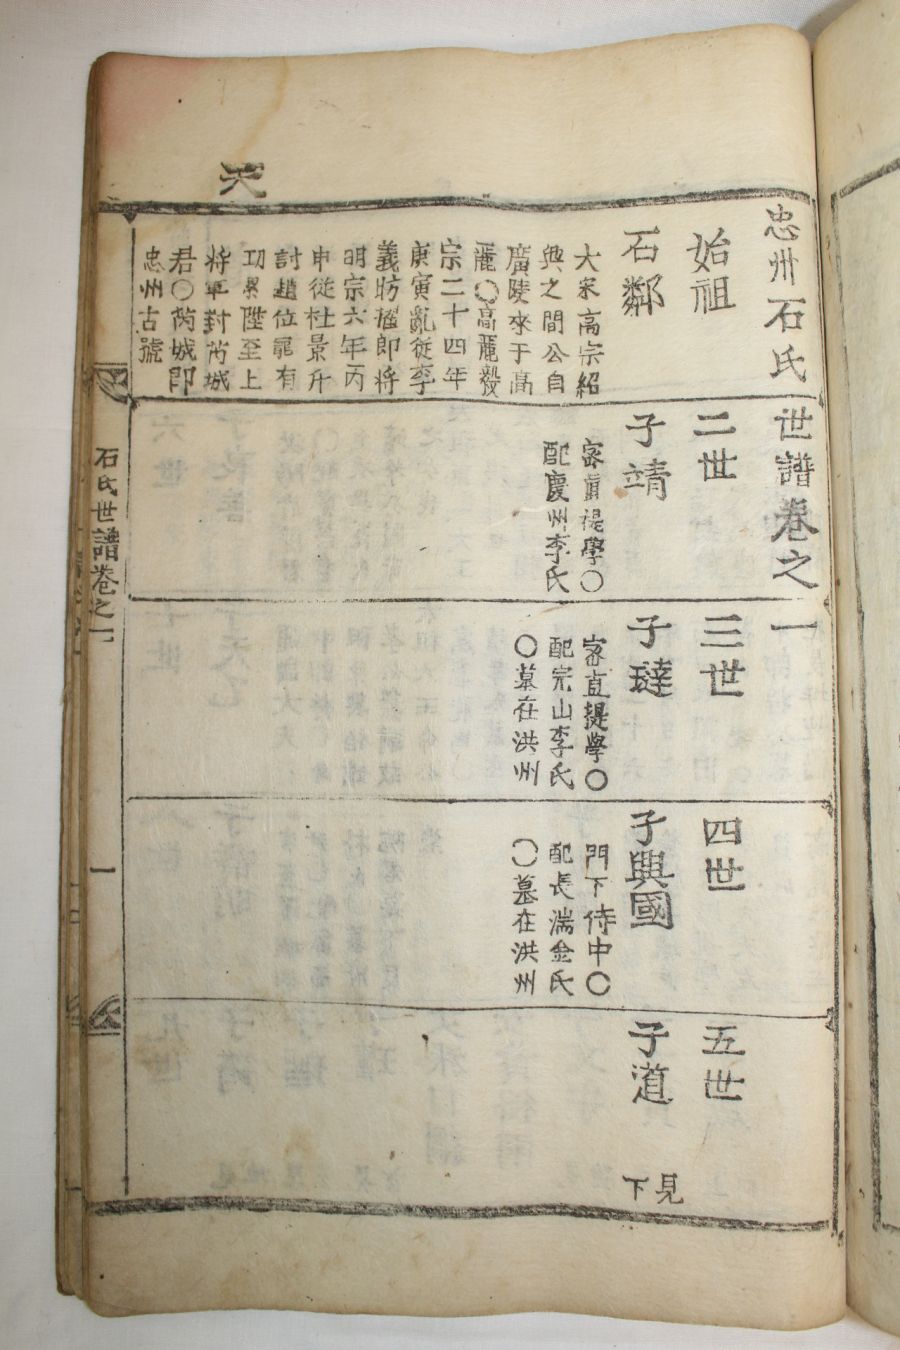 天
忠州石氏世譜卷之一
始祖
石鄰
大宋高宗紹
興之間公自
廣陵來于高
麗〇高麗毅
宗二十四年
庚寅亂從李
義昉榲即將
明宗六年丙
申從杜景升
討趙位寵有
功累陞至上
將軍封芮城
君〇芮城即
忠州古號
二世
子靖
密直提學〇
配慶州李氏
三世
子㺚
密直提學〇
配完山李氏
〇墓在洪州
四世
子興國
門下侍中〇
配長湍金氏
〇墓在洪州
五世
子道
見下
石氏世譜卷之一
一